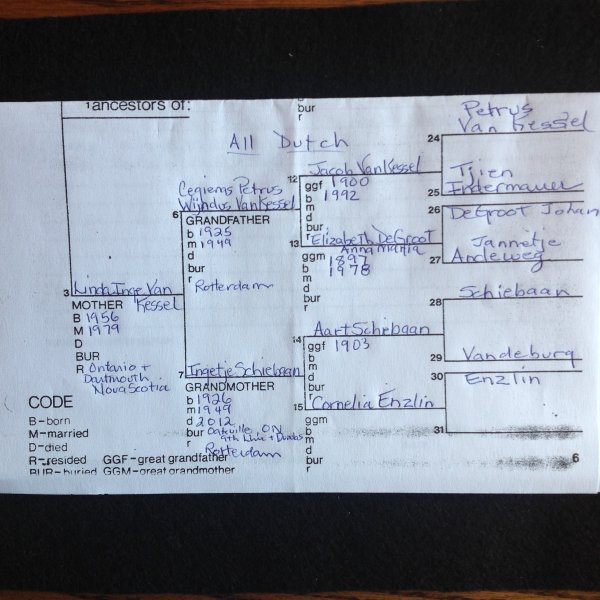 1ancestors of:
bur
r
All Dutch
Petrus
Van Kessel
24
12 Jacob VanKessel
ggf 1900
b 1992
m
d
bur
r
Tjien
25 Endermauer
Cegiems Petrus
Wijndus VanKessel
6
GRANDFATHER
b 1925
m 1949
d
bur
r
Rotterdam
26 DeGroot Johan
13 Elizabeth DeGroot
Anna Maria
ggm 1897
b 1978
m
d
bur
r
Jannetje
27 Andeweg
3 Linda Inge Van
Kessel
MOTHER
B 1956
M 1979
D
BUR
R Ontario +
Dartmouth
Nova Scotia
28 Schiebaan
14 Aart Schiebaan
ggf 1903
b
m
d
bur
r
29 Vandeburg
7 Ingetje Schiebaan
GRANDMOTHER
b 1926
m 1949
d 2012
bur Oakville, ON
9th Line + Dundas
r Rotterdam
30 Enzlin
15 Cornelia Enzlin
ggm
b
m
d
bur
r
31
CODE
B-born
M-married
D-died
R-resided GGF-great grandfather
BUR-buried GGM-great grandmother
6